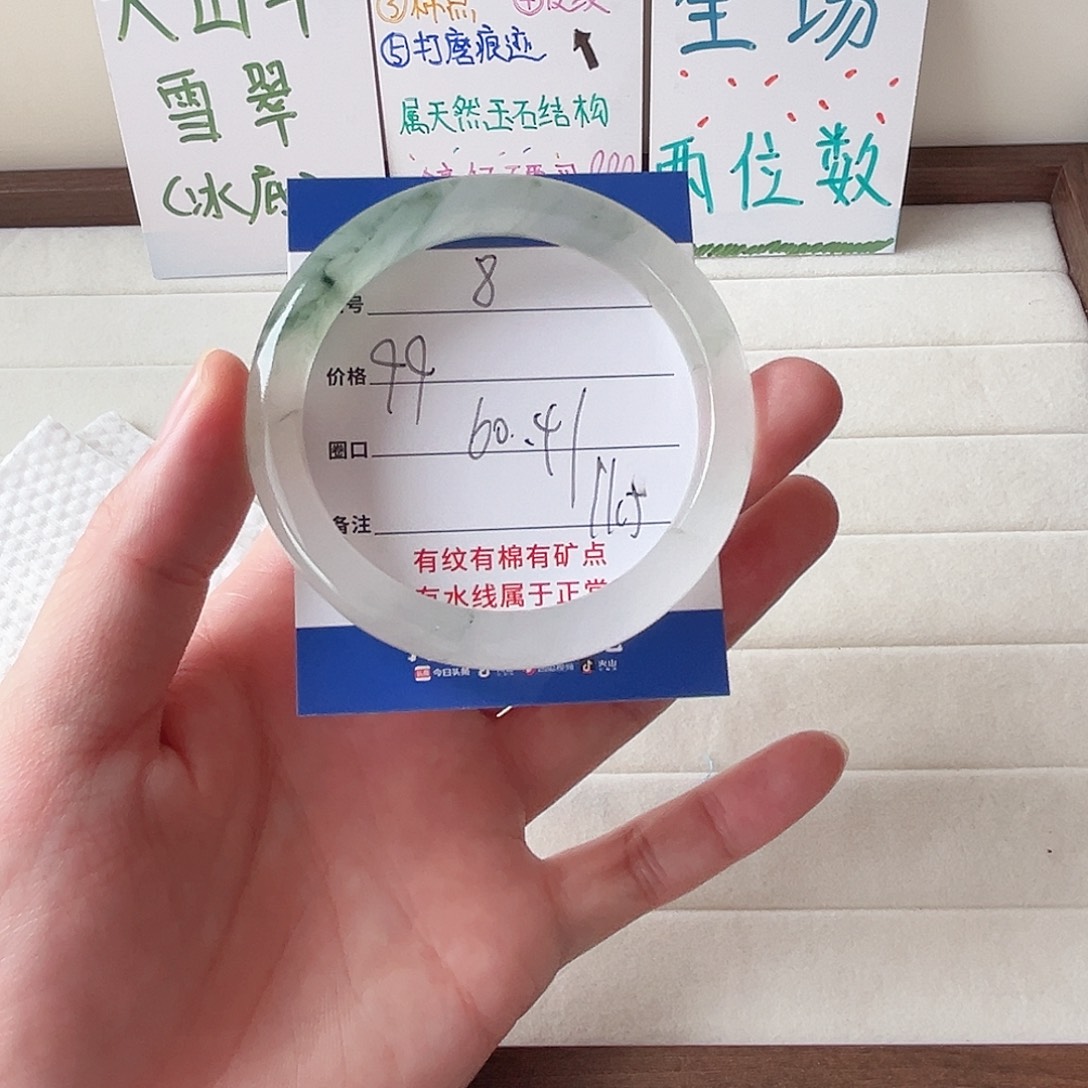 雪翠
(冰底)
⑤打磨痕迹
属天然玉石结构
全场
两位数
号 8
价格 99
圈口 60.4/11.5
备注
有纹有棉有矿点
有水线属于正常
今日头条 火山